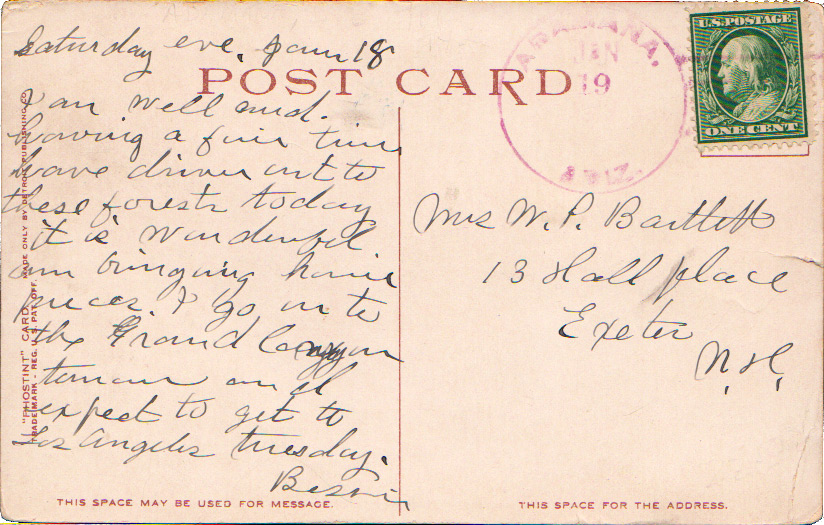 Saturday eve, Jan 18
POST CARD
I am well and.
having a fair time
have driven out to
these forests today
it is wonderful
am bringing home
pieces. I go on to
the Grand Canyon
expect to get to
Los Angeles tuesday.
THIS SPACE MAY BE USED FOR MESSAGE.
"PHOSTINT" CARD. MADE ONLY BY DETROIT PUBLISHING CO.
TRADE MARK - REG. U.S. PAT. OFF.
ADAMANA,
JAN
19
ARIZ.
U.S. POSTAGE
ONE CENT
Mrs W. P. Bartlett
13 Hall place
Exeter
N.H.
THIS SPACE FOR THE ADDRESS.